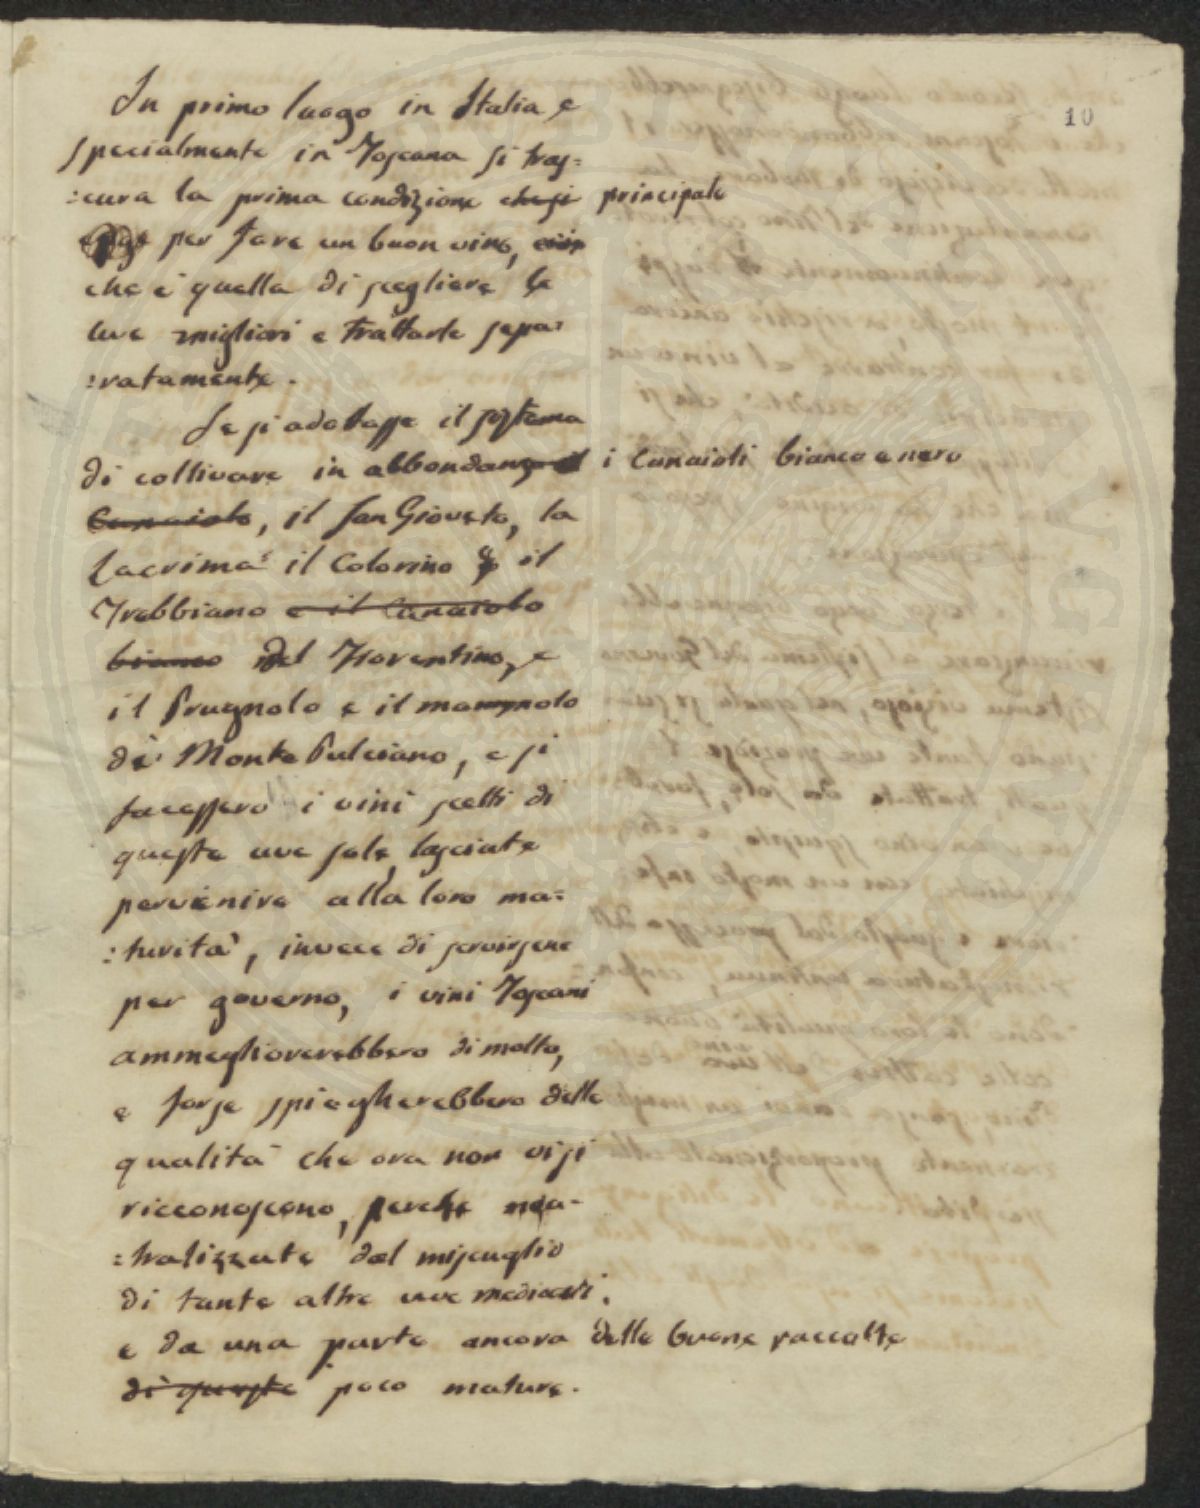 10
In primo luogo in Italia e
specialmente in Toscana si tras=
=cura la prima condizione che si principale
per fare un buon vino,
che è quella di scegliere le
uve migliori e trattarle sepa=
=ratamente.
Se si adottasse il sistema
di coltivare in abbondanza il i Canaioli bianco e nero
Canaiolo, il San Gioveto, la
Lacrima il Colorino il
Trebbiano e il Canaiolo
bianco del Fiorentino, e
il Prugnolo e il mammolo
di Monte Pulciano, e si
facessero i vini scelti di
queste uve sole, lasciate
pervenire alla loro ma=
=turità, invece di servirsene
per governo, i vini Toscani
ammeglioverebbero di molto,
e forse spiegherebbero delle
qualità che ora non vi si
ricconoscono, perche neu-
=tralizzate dal miscuglio
di tante altre uve mediocri,
e da una parte ancora delle buone raccolte
di queste poco mature.